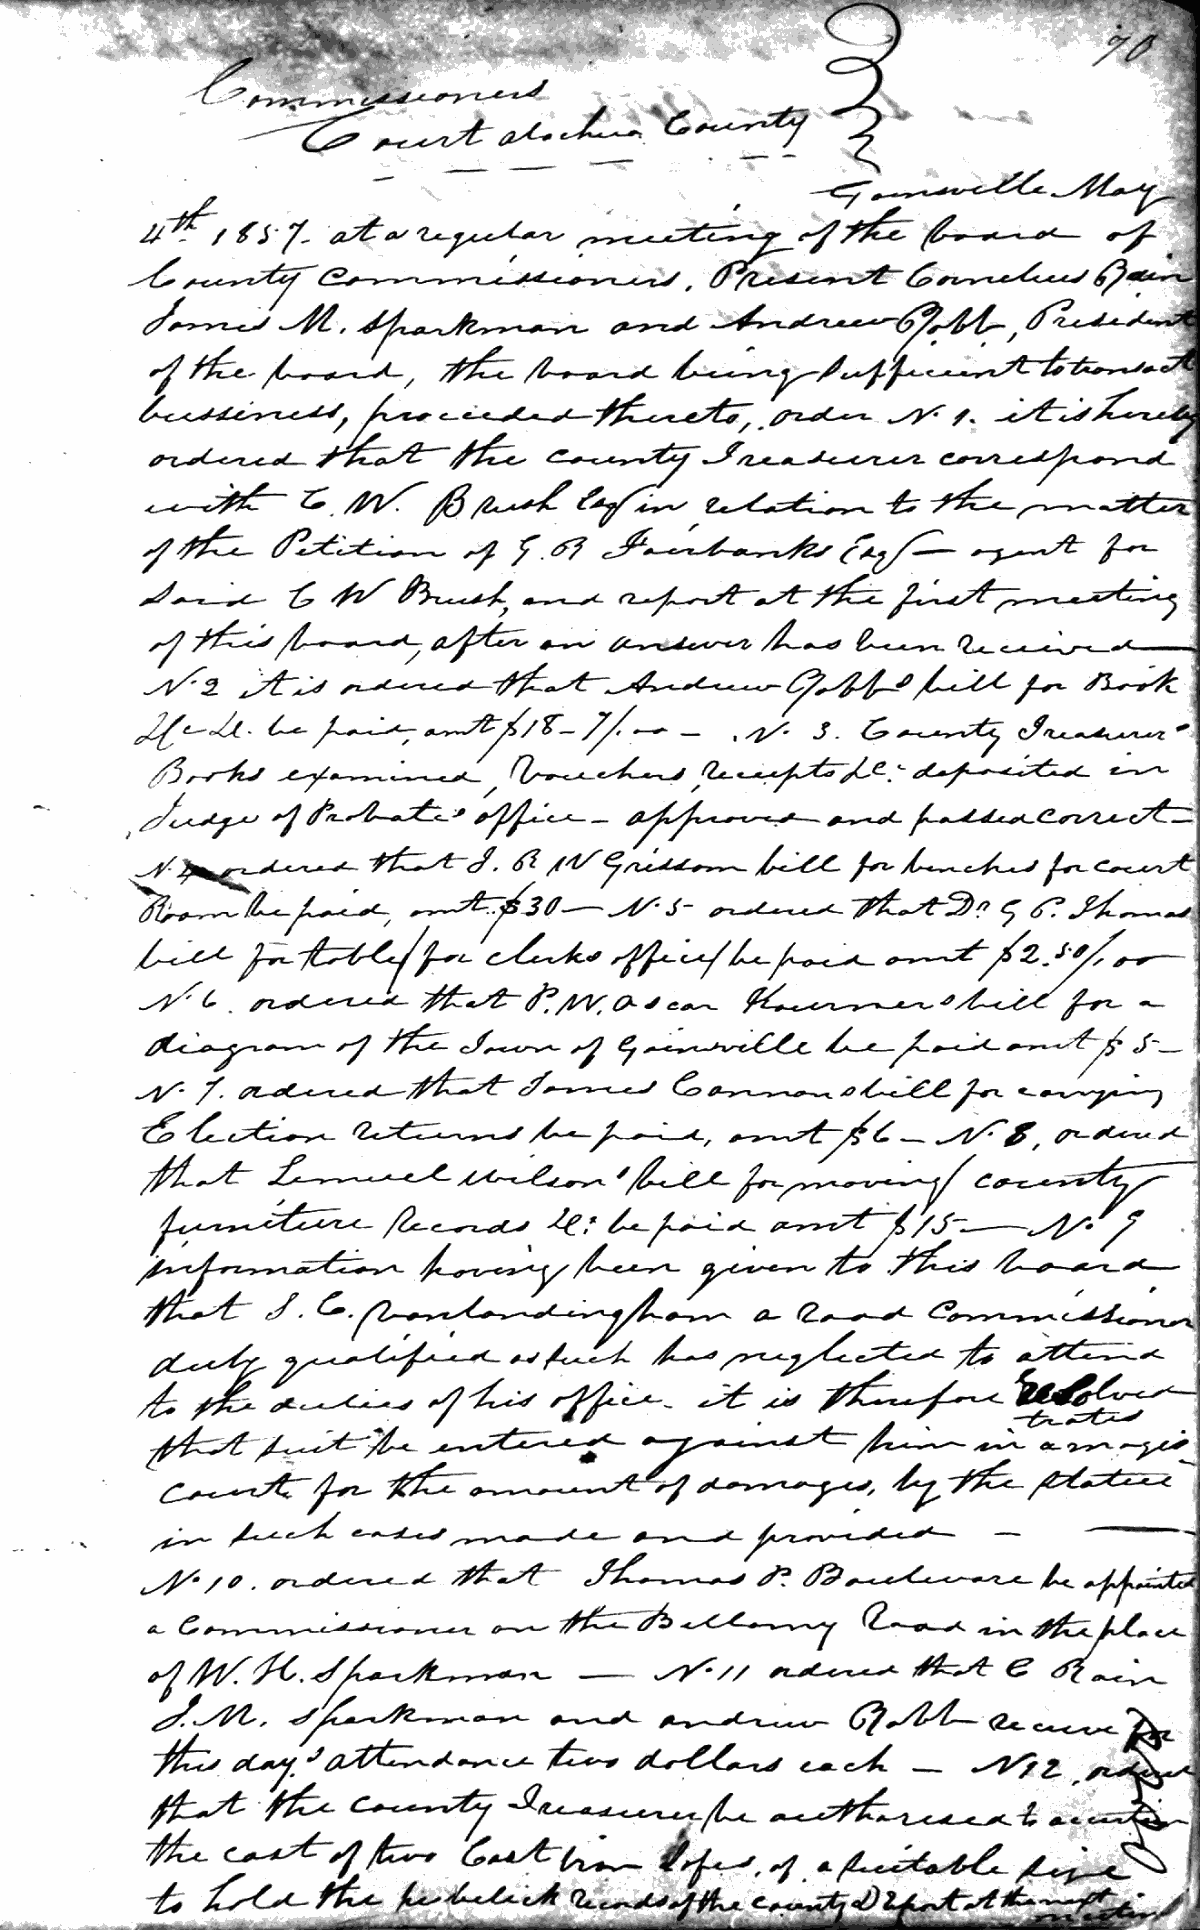 70
Commissioners
Court Alachua County
Gainsville May
4th 1857. at a regular meeting of the board of
County Commissioners. Present Cornelius Rain
James M. Sparkman and Andrew Robb, President
of the board, the board being sufficient to transact
bussiness, proceeded thereto, order No 1. it is hereby
ordered that the county Treasurer correspond
with C. W. Brush Esq in relation to the matter
of the Petition of G. R Fairbanks Esq — agent for
said C W Brush, and report at the first meeting
of this board, after an answer has been received —
No 2 it is ordered that Andrew Robbs bill for Book
&c &c. be paid, amt $18-7/.00 — No 3. County Treasurer's
Books examined, Vouchers, receipts &c: deposited in
Judge of Probate's office — approved and passed correct —
No 4 ordered that J. R W Grissom bill for benches for court
Room be paid, amt. $30 — No 5 ordered that Dr G P. Thomas
bill for table for clerks office be paid amt $2.50/.00
No 6. ordered that P. W. Oscar Koerners bill for a
diagram of the Town of Gainsville be paid amt $5 —
No 7. ordered that James Cannons bill for carrying
Election returns be paid, amt $6 — No 8, ordered
that Lemuel Wilson's bill for moving county
furniture Records &c: be paid amt $15 — No 9
information having been given to this board
that S. C. Vanlandingham a road Commissioner
duly qualified as such has neglected to attend
to the duties of his office. it is therefore resolved
trates
that suit be entered against him in a magis-
court for the amount of damages, by the statue
in such cases made and provided — —
No 10. ordered that Thomas P. Bauleware be appointed
a Commissioner on the Bellamy Road in the place
of W. H. Sparkman — No 11 ordered that C Rain
J. M. Sparkman and andrew Robb receive for
this day's attendance two dollars each — No 12, ordered
that the county Treasurer be authorised to
the cost of two Cast iron Safes, of a suitable size
to hold the publick records of the county & Report at the next
meeting